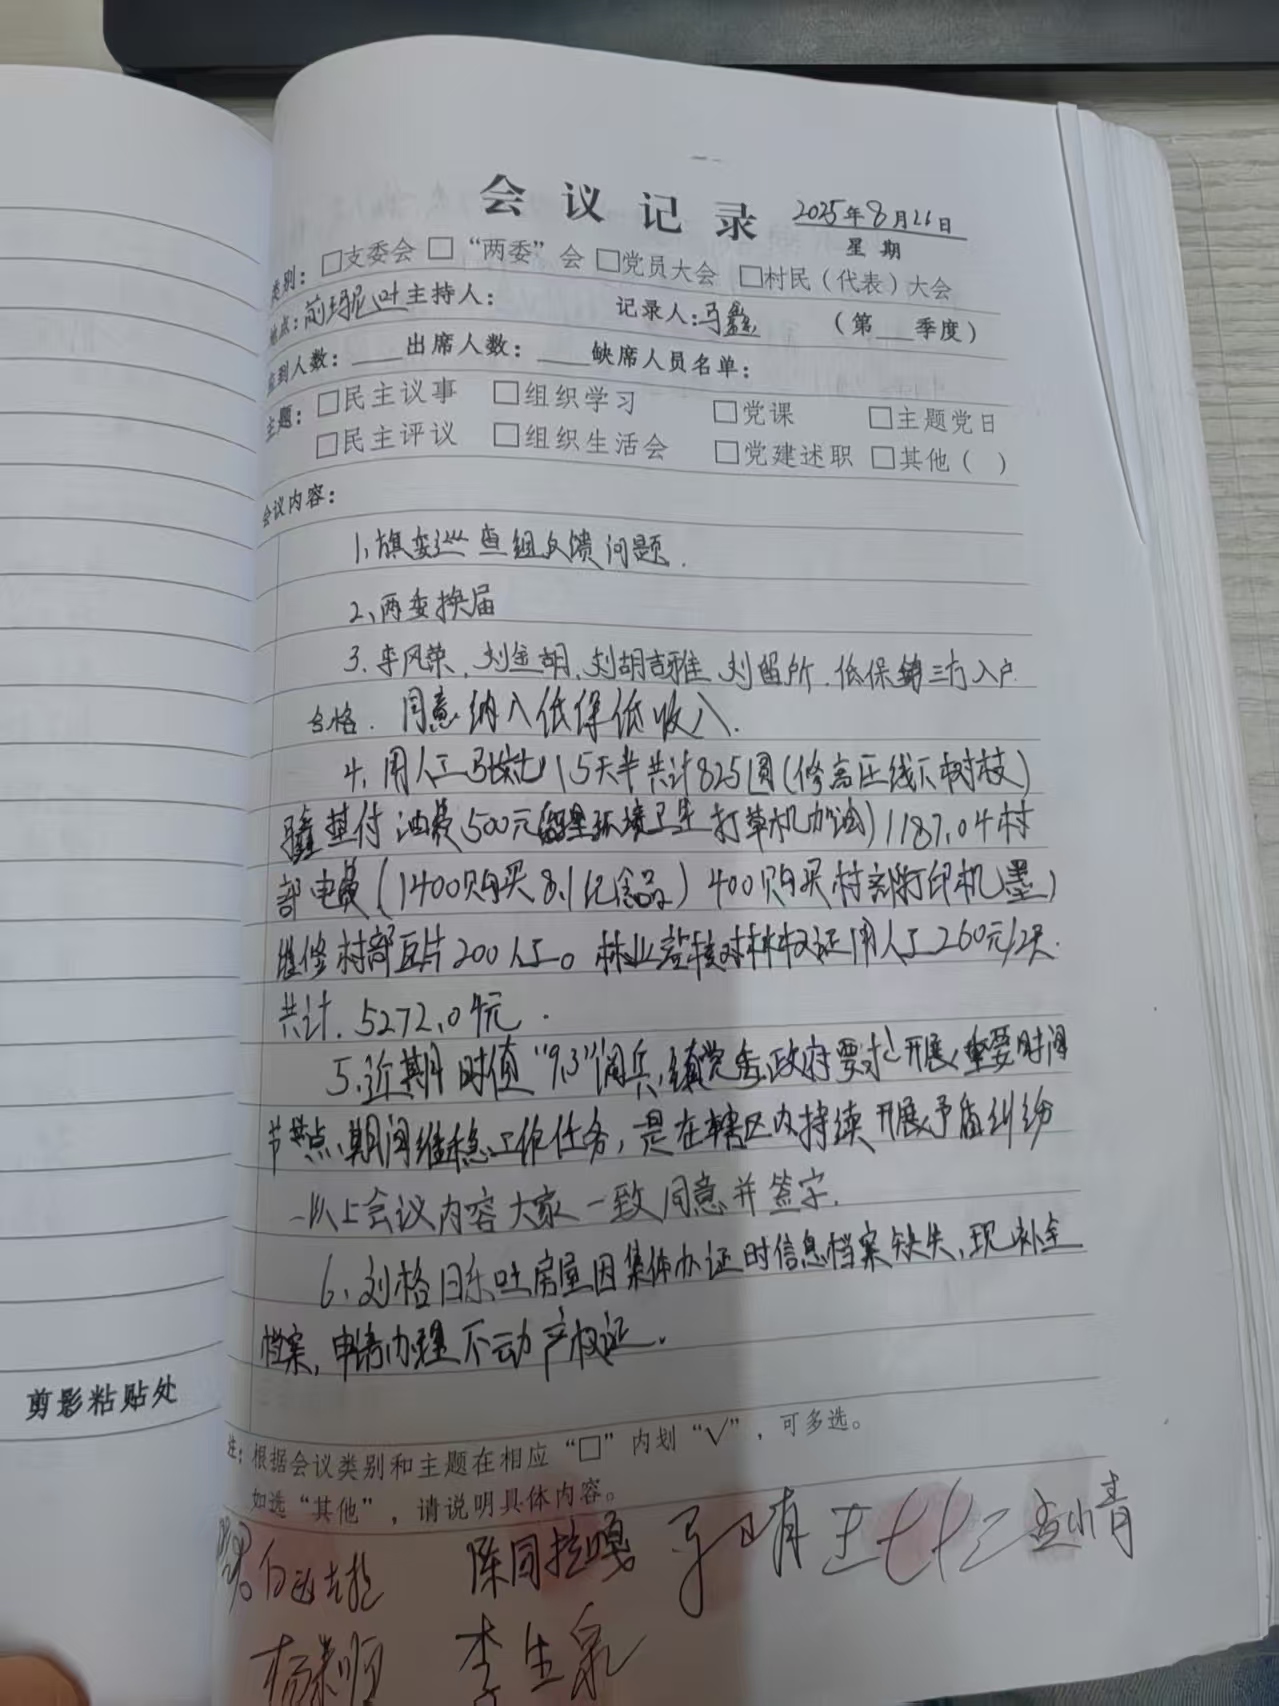 会议记录 2025年8月26日
星期
类别：□支委会 □“两委”会 □党员大会 □村民（代表）大会
地点：前玛尼吐 主持人： 记录人：马鑫 （第__季度）
应到人数：____ 出席人数：____ 缺席人员名单：
主题：□民主议事 □组织学习 □党课 □主题党日
□民主评议 □组织生活会 □党建述职 □其他（ ）
会议内容：
1、旗委巡查组反馈问题.
2、两委换届
3. 李风荣、刘金胡、刘胡吉雅、刘留所.低保第三方入户
合格. 同意纳入低保低收入.
4、用人工 15天半共计825圆(修高压线下树枝)
垫付油费500元(整理环境卫生打草机加油)1187.04村
部电费(1400购买8.1纪念品)400购买村部打印机墨)
维修村部瓦片200人工。林业站核对林权证用人工260元/2天.
共计.5272.04元.
5、近期时值“9.3”阅兵,镇党委政府要求开展重要时间
节点、期间维稳工作任务，是在辖区内持续开展矛盾纠纷
以上会议内容大家一致同意并签字.
6、刘格日乐吐房屋因集体办证时信息档案缺失,现补全
档案，申请办理不动产权证.
剪影粘贴处
注：根据会议类别和主题在相应“□”内划“√”，可多选。
如选“其他”，请说明具体内容。
陈同拉嘎 孟小青
李生泉